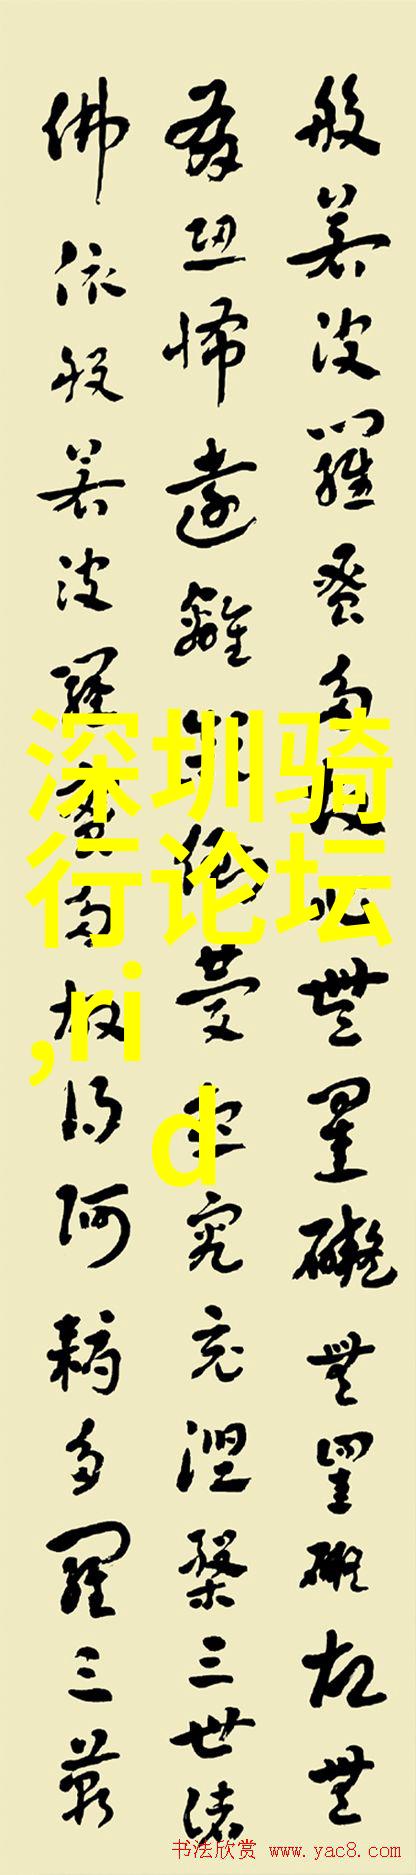 般若波羅蜜多故心無罣礙無罣礙故無
有恐怖遠離顛倒夢想究竟涅槃三世諸
佛依般若波羅蜜多故得阿耨多羅三藐
深圳骑
行论坛
,ri
d
书法欣赏 www.yac8.com